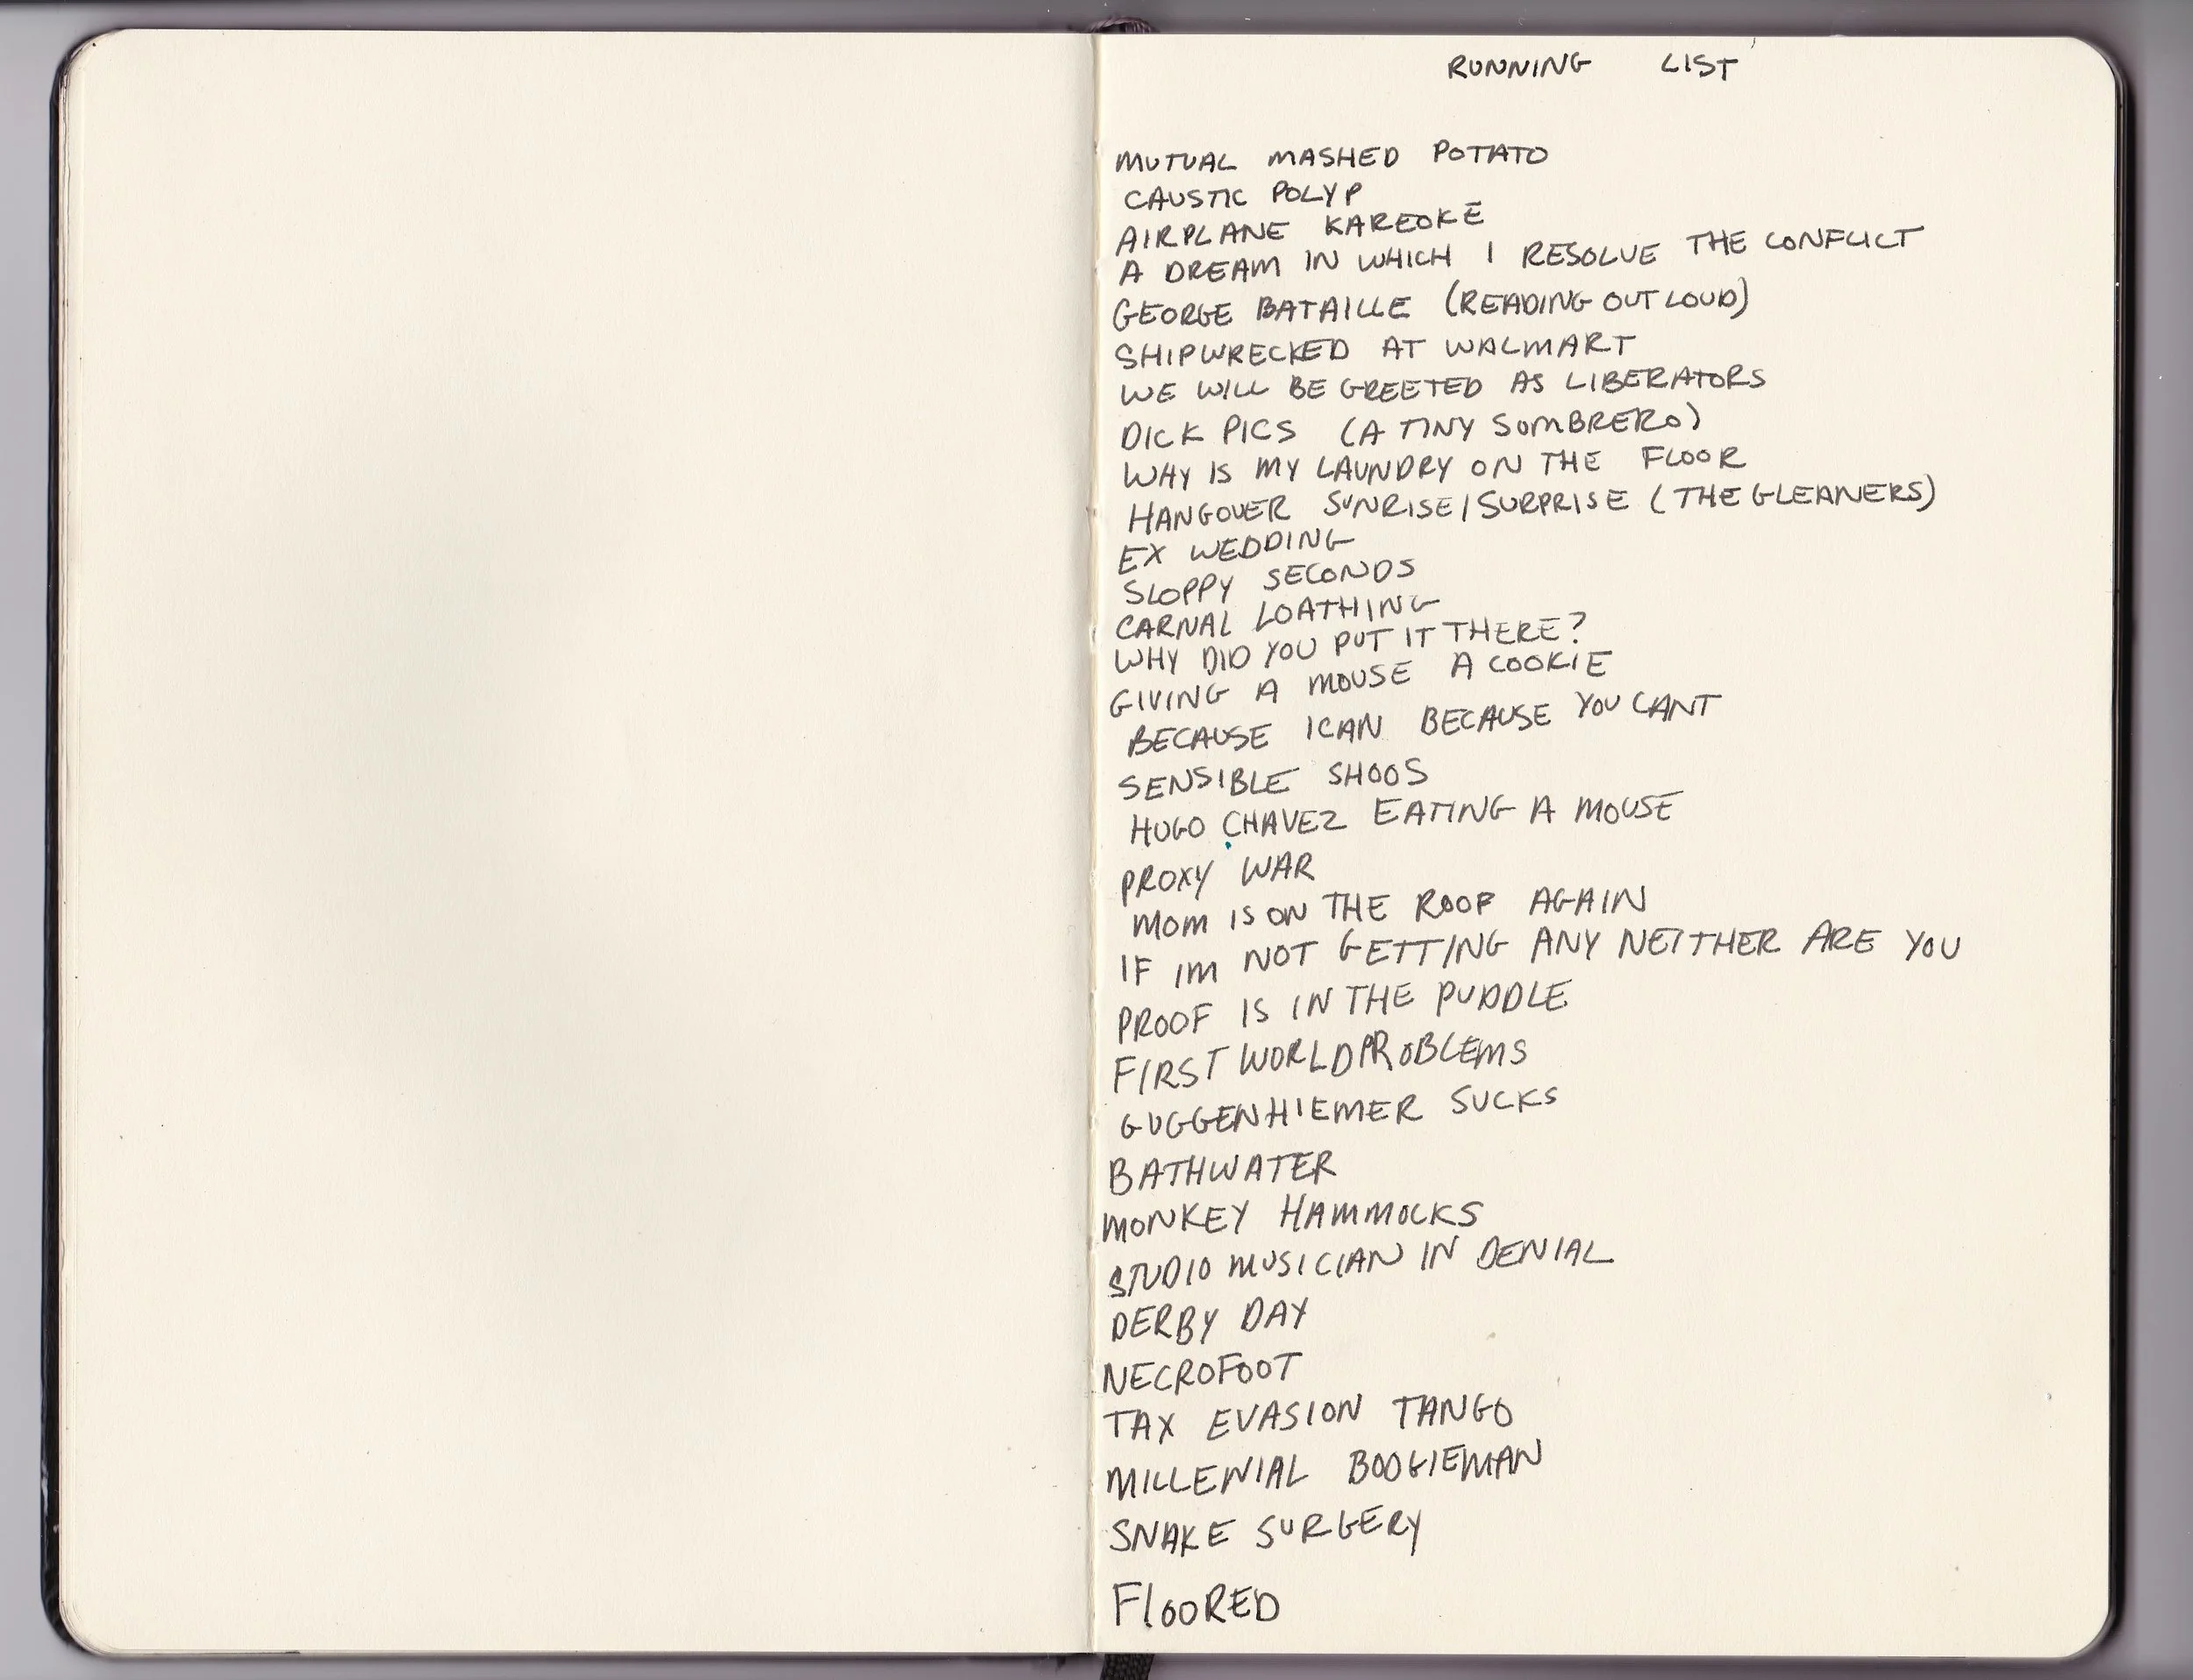 RUNNING LIST
MUTUAL MASHED POTATO
CAUSTIC POLYP
AIRPLANE KAREOKE
A DREAM IN WHICH I RESOLVE THE CONFLICT
GEORGE BATAILLE (READING OUT LOUD)
SHIPWRECKED AT WALMART
WE WILL BE GREETED AS LIBERATORS
DICK PICS (A TINY SOMBRERO)
WHY IS MY LAUNDRY ON THE FLOOR
HANGOVER SUNRISE/SURPRISE (THE GLEANERS)
EX WEDDING
SLOPPY SECONDS
CARNAL LOATHING
WHY DID YOU PUT IT THERE?
GIVING A MOUSE A COOKIE
BECAUSE I CAN BECAUSE YOU CANT
SENSIBLE SHOOS
HUGO CHAVEZ EATING A MOUSE
PROXY WAR
MOM IS ON THE ROOF AGAIN
IF IM NOT GETTING ANY NEITHER ARE YOU
PROOF IS IN THE PUDDLE
FIRST WORLD PROBLEMS
GUGGENHIEMER SUCKS
BATHWATER
MONKEY HAMMOCKS
STUDIO MUSICIAN IN DENIAL
DERBY DAY
NECROFOOT
TAX EVASION TANGO
MILLENIAL BOOGIEMAN
SNAKE SURGERY
FlOORED